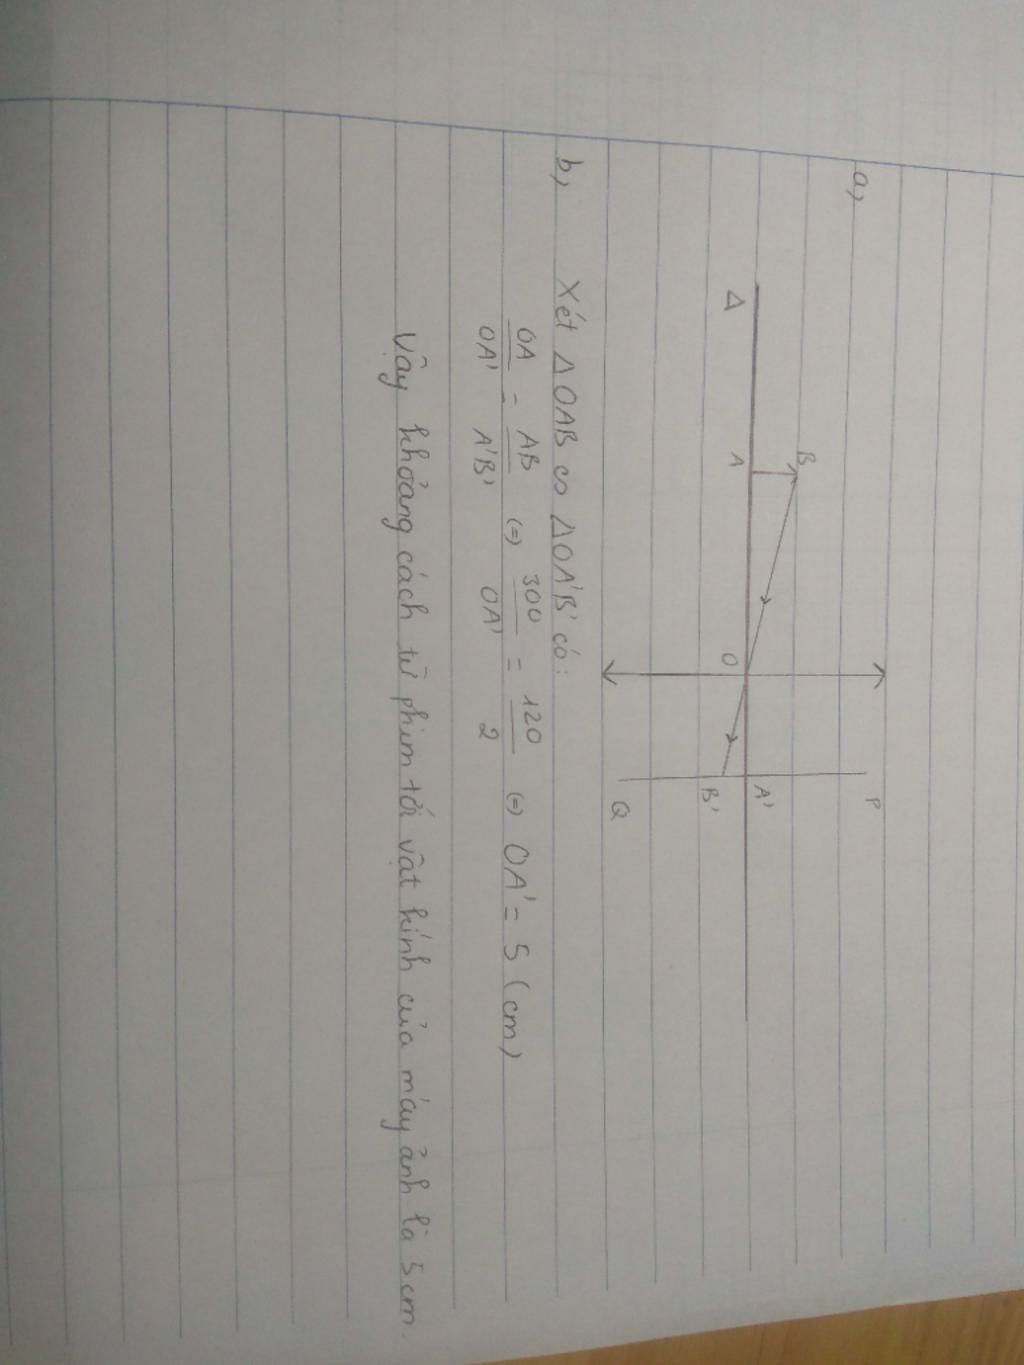 a,
B
P
Δ
A
O
A'
B'
Q
b, Xét ΔOAB ∽ ΔOA'B' có:
OA/OA' = AB/A'B' (=) 300/OA' = 120/2 (=) OA' = 5 (cm)
Vậy khoảng cách từ phim tới vật kính của máy ảnh là 5cm.